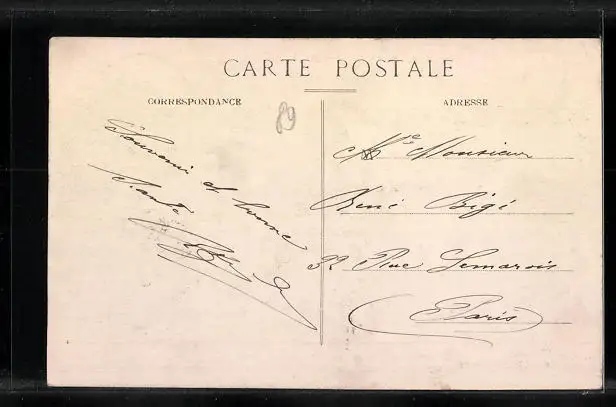 CARTE POSTALE
CORRESPONDANCE
ADRESSE
89
Souvenir et bonne
Santé
Monsieur
René Bigé
32 Rue Lemarois
Paris